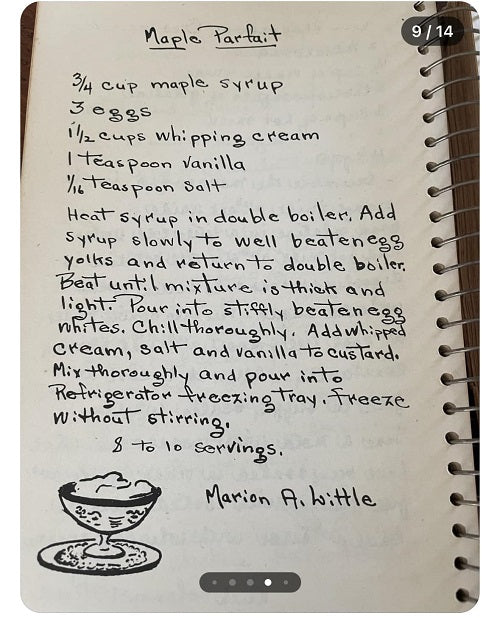 9/14
Maple Parfait
3/4 cup maple syrup
3 eggs
1 1/2 cups whipping cream
1 teaspoon vanilla
1/16 teaspoon salt
Heat syrup in double boiler. Add
syrup slowly to well beaten egg
yolks and return to double boiler.
Beat until mixture is thick and
light. Pour into stiffly beaten egg
whites. Chill thoroughly. Add whipped
cream, salt and vanilla to custard.
Mix thoroughly and pour into
Refrigerator freezing tray. Freeze
without stirring.
8 to 10 servings.
Marion A. Little